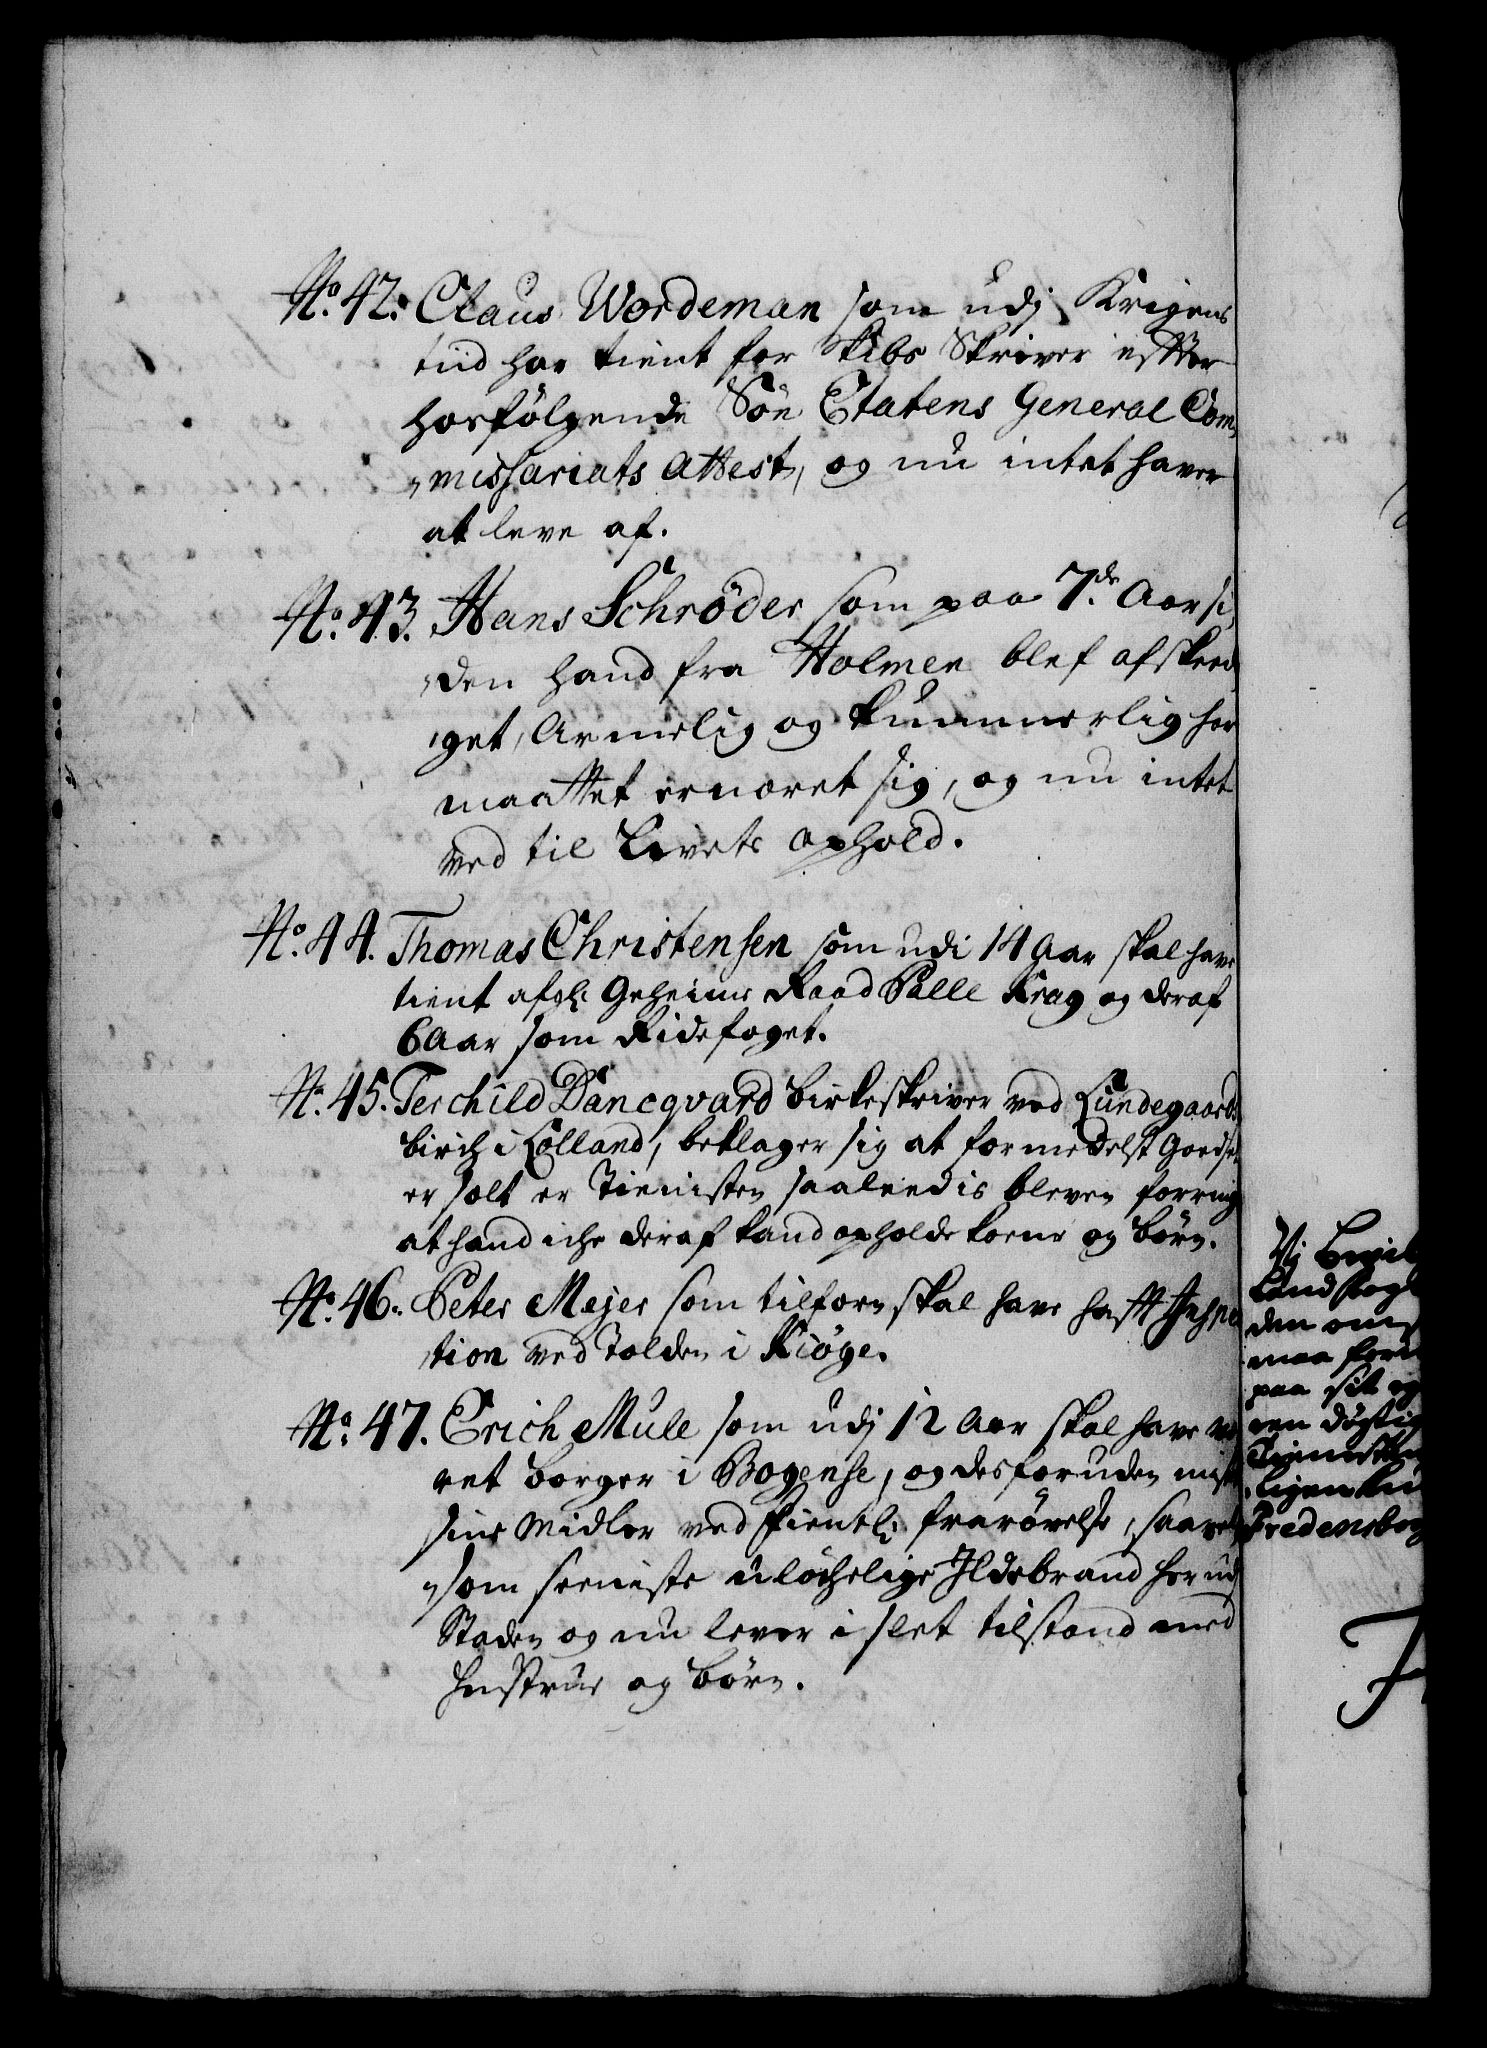 No. 42. Claus Wordeman som udj Krigens
tiid har tient for Skibs Skriver effter
hosfølgende Søe Etatens General Com„
„missariats Attest, og nu intet haver
at leve af.
No. 43. Hans Schrøder som paa 7de Aar si„
„den hand fra Holmen blef afskeed„
„get, Armelig og kummerlig har
maattet ernæret sig, og nu intet
ved til Livets ophold.
No. 44. Thomas Christensen som udi 14 Aar skal have
tient afgl: Geheime Raad Palle Krag og deraf
6 Aar som Ridefoget.
No. 45. Terchild Dancqvard Birkeskriver ved Lundegaards
Birch i Lolland, beklager sig at formedelst Goedset
er solt er Tienisten saaledis bleven forring
at hand iche deraf kand opholde Kone og Børn.
No. 46. Peter Mejer som tilforn skal have hafft Inspec
„tion ved Tolden i Kiøge.
No. 47. Erich Mule som udj 12 Aar skal have væ
ret borger i Bogense, og desforuden mist
sine Midler ved fientl: frarøvelse, saavel
„som seeniste ulöchelige Ildebrand her ud
Staden og nu lever i slet tilstand med
Hustrue og Børn.
Vj
Land
den om
maa for
paa sit og
een døgtig
Tienisten
ligen
Fredensborg